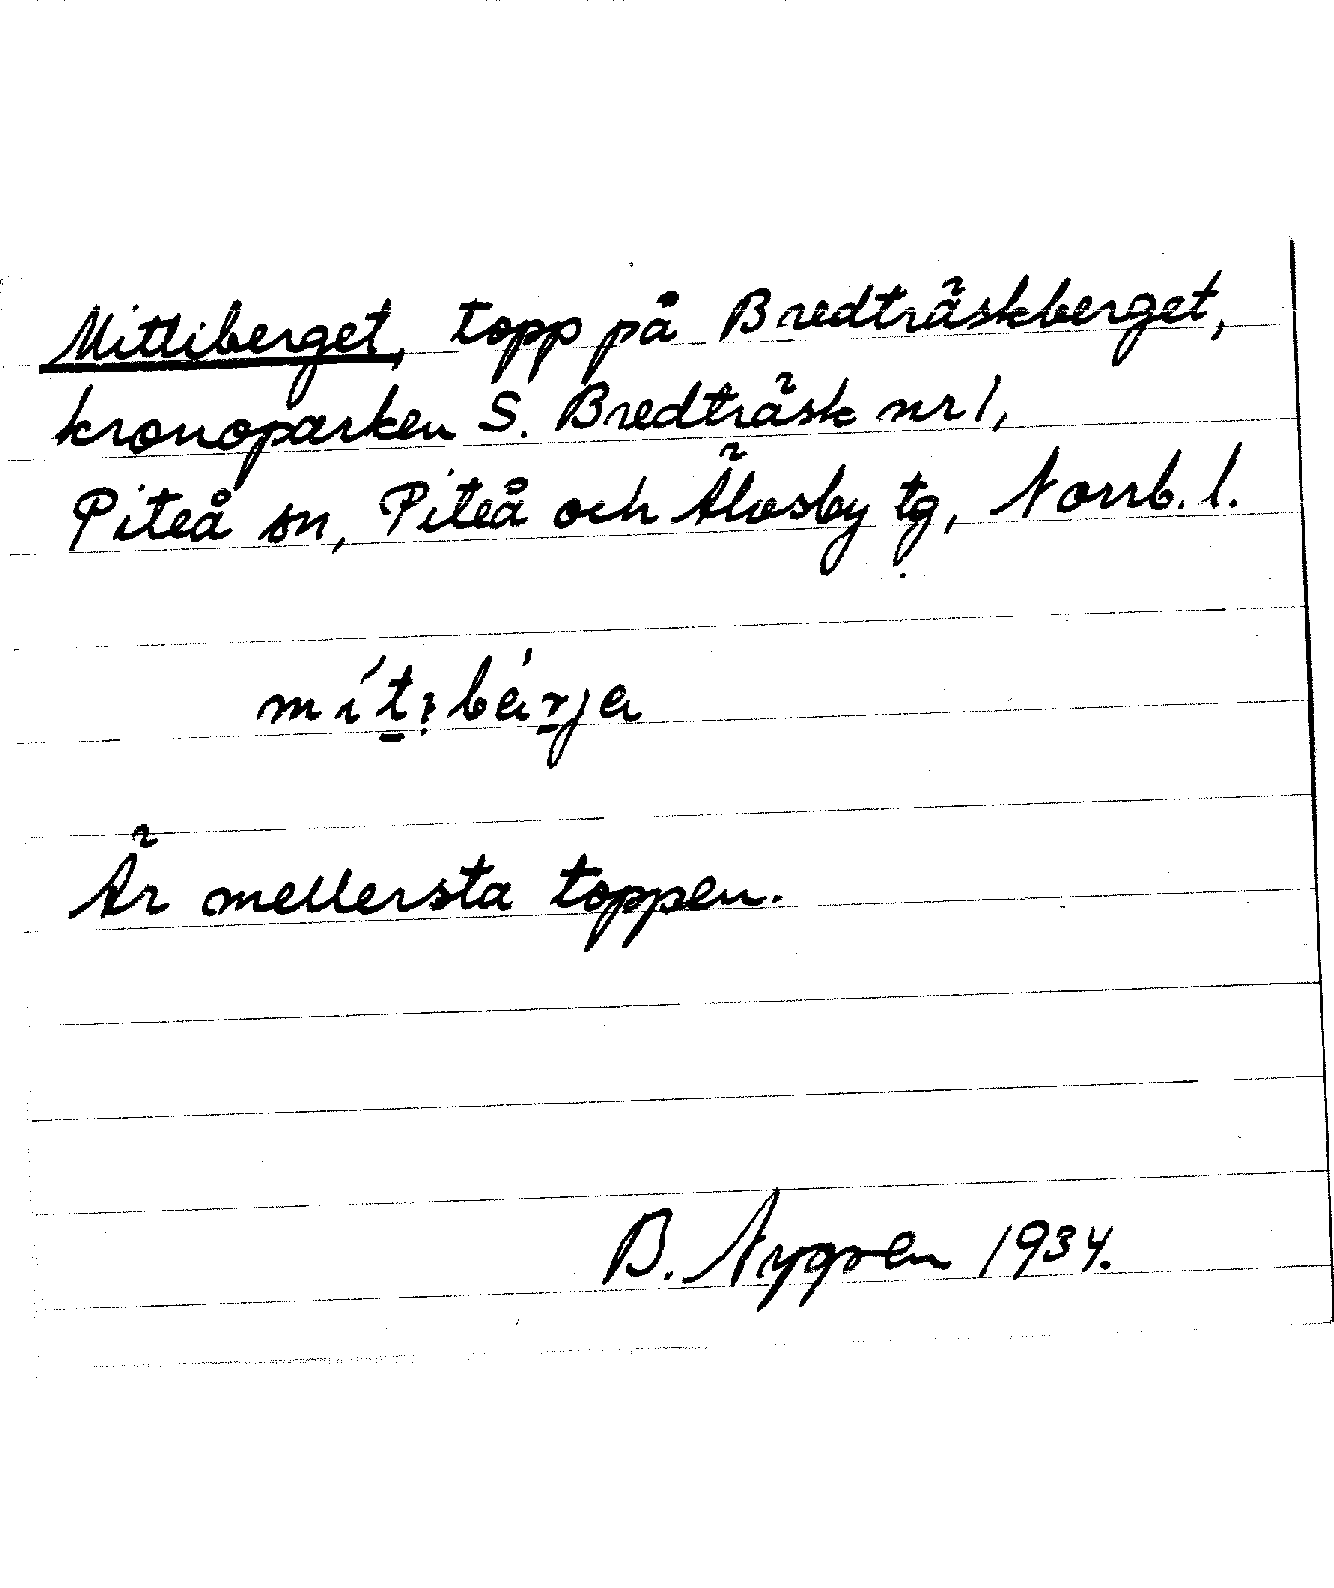 Mittiberget, topp på Bredträskberget,
kronoparken S. Bredträsk nr 1,
Piteå sn, Piteå och Älvsby tg, Norrb. l.
Är mellersta toppen.
B. Nygren 1934.